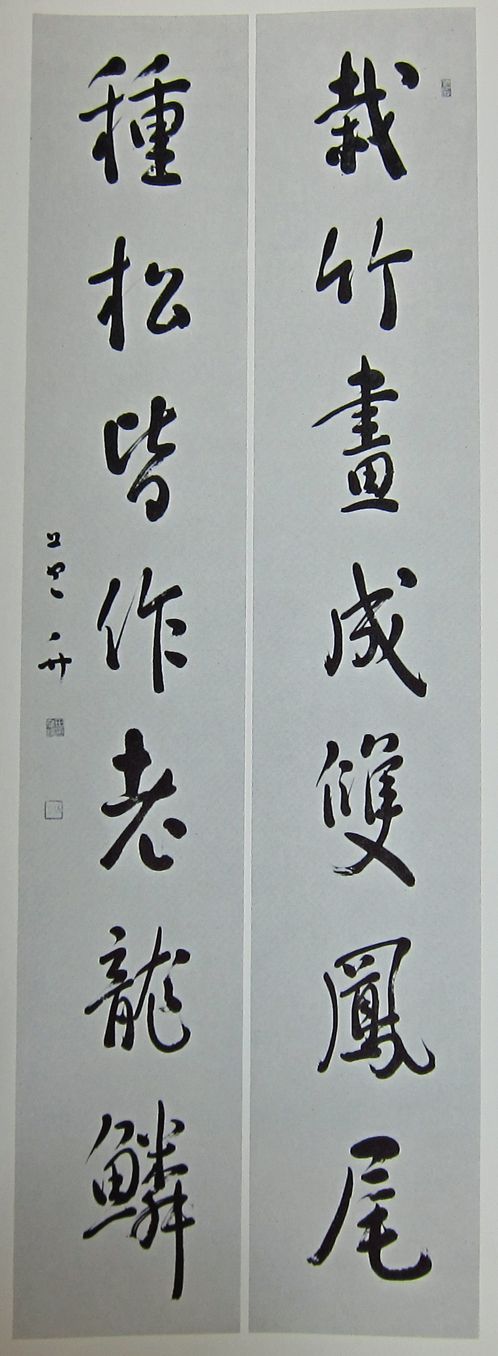 栽竹畫成雙鳳尾
種松皆作老龍鱗